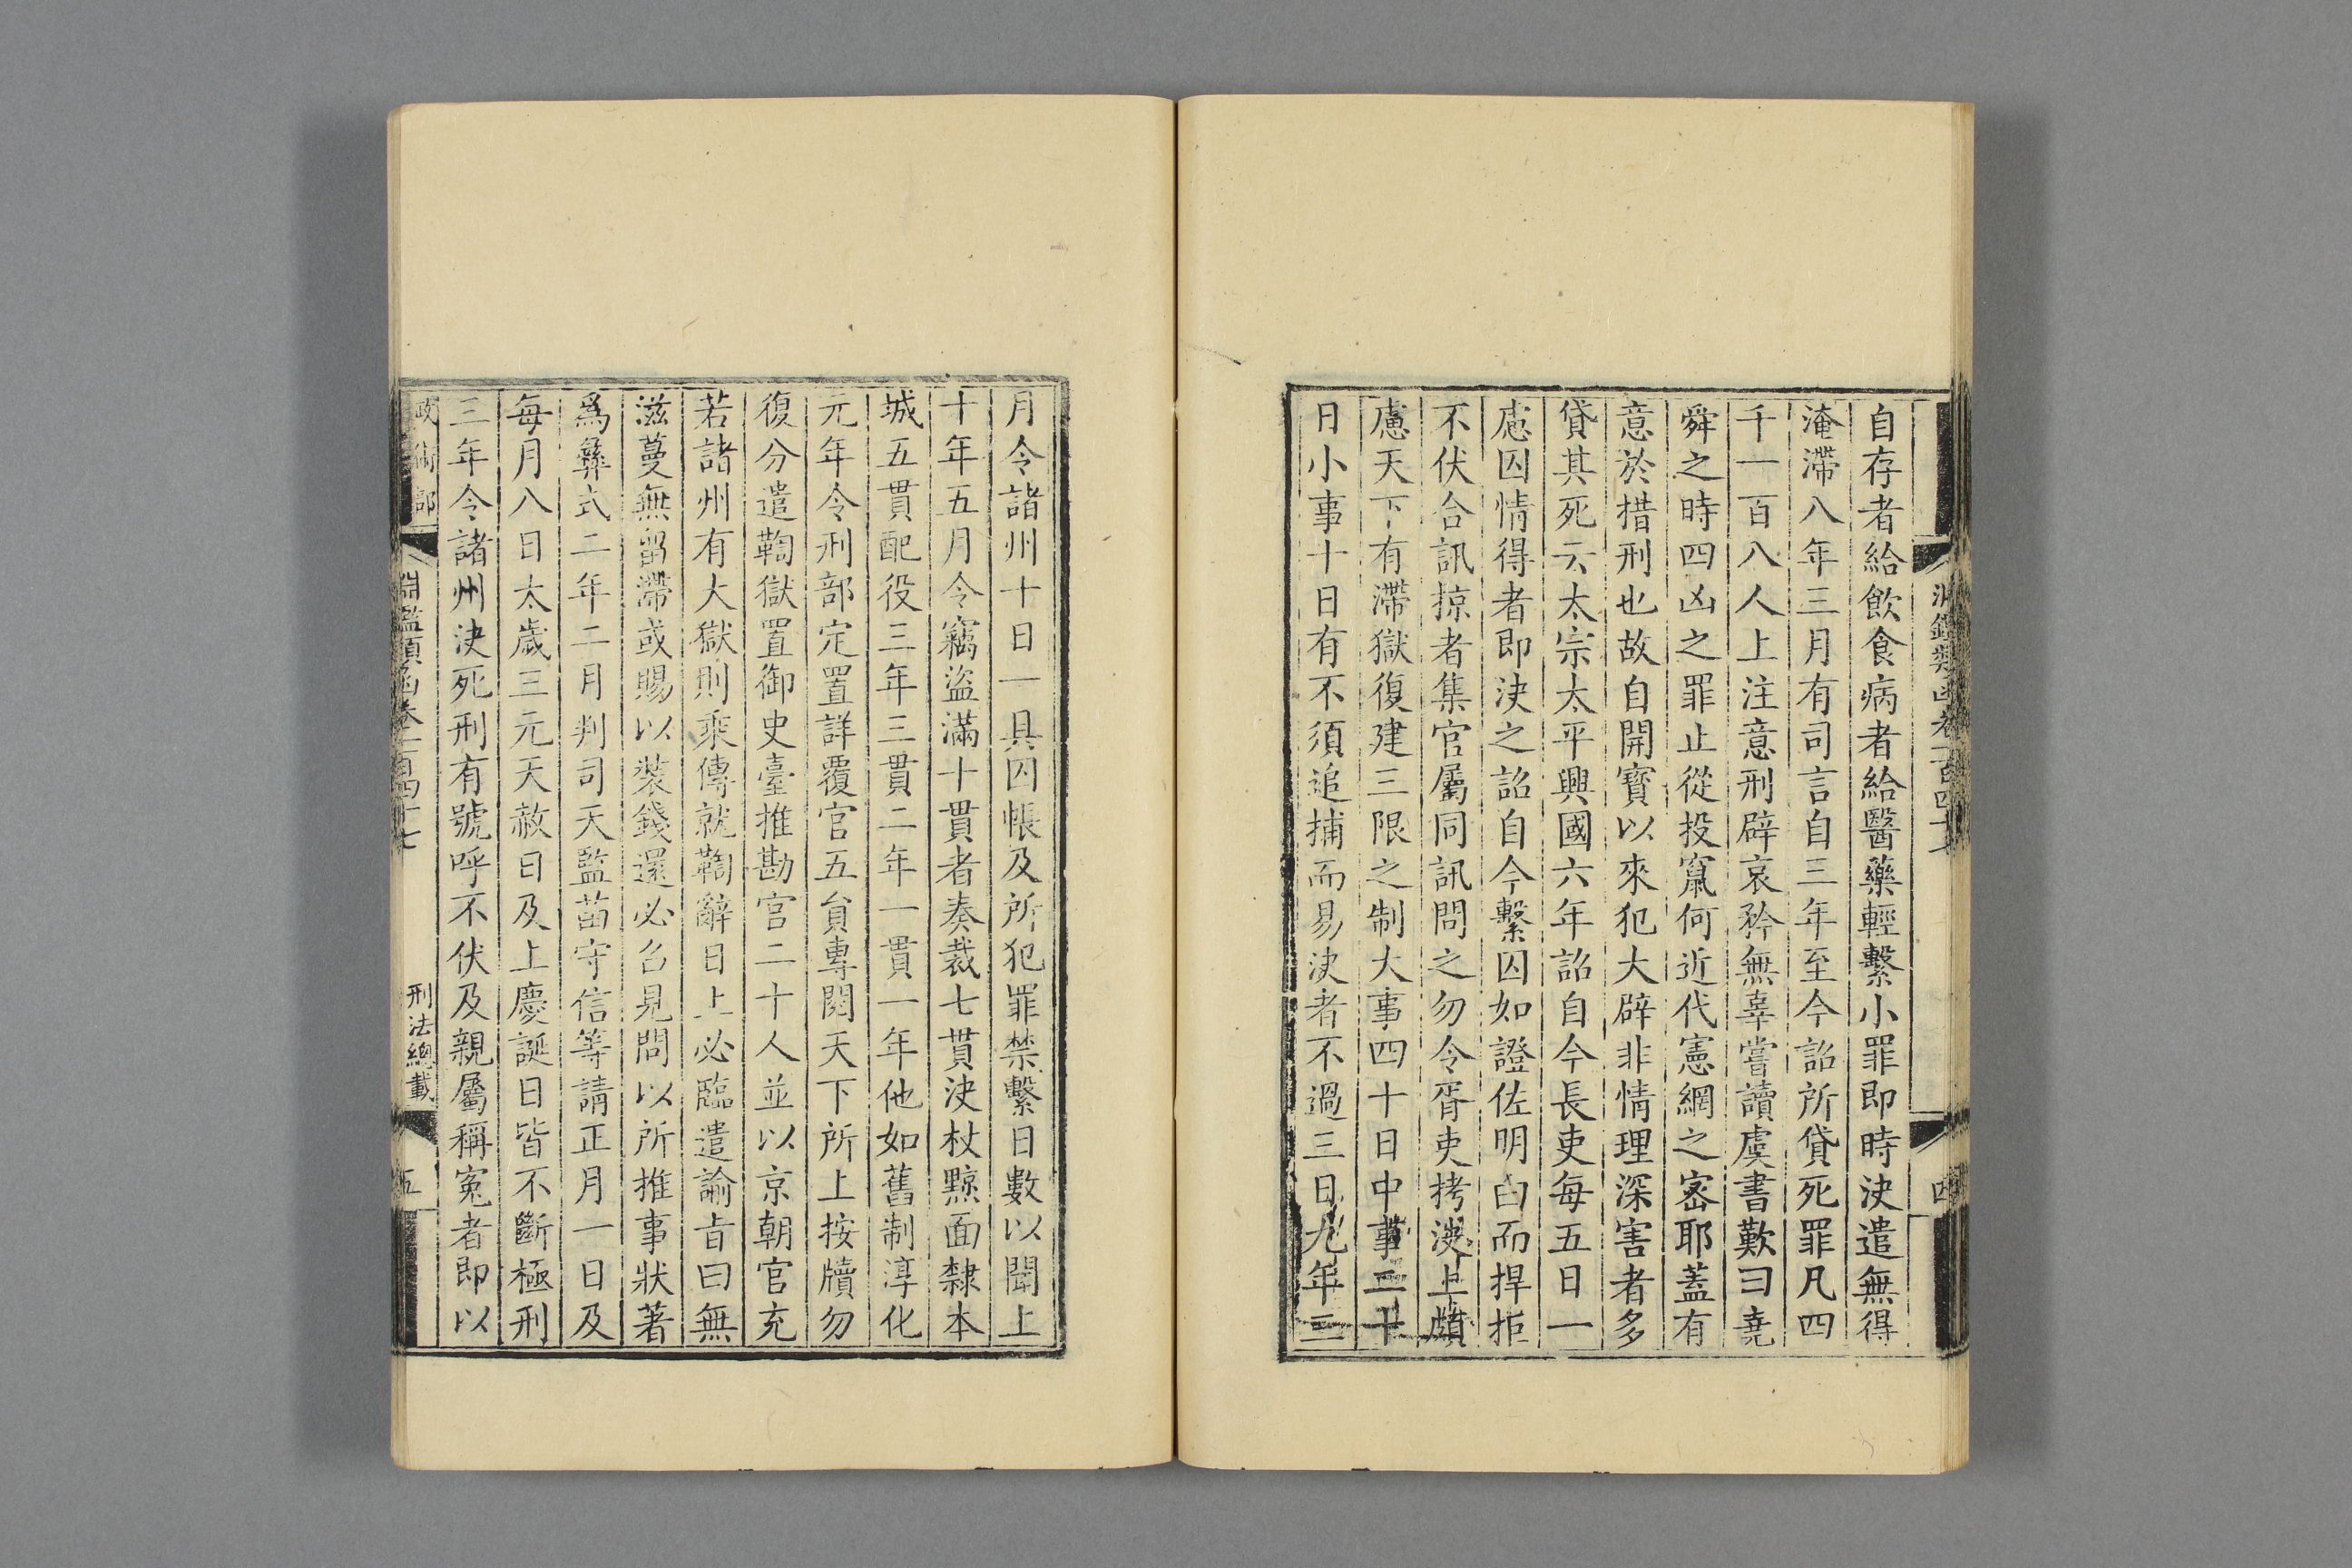 淵鑑類函卷一百四十七
四
自存者給飲食病者給醫藥輕繫小罪即時決遣無得
淹滯八年三月有司言自三年至今詔所貸死罪凡四
千一百八人上注意刑辟哀矜無辜嘗讀虞書歎曰堯
舜之時四凶之罪止從投竄何近代憲網之密耶蓋有
意於措刑也故自開寶以來犯大辟非情理深害者多
貸其死云太宗太平興國六年詔自今長吏每五日一
慮囚情得者即決之詔自今繫囚如證佐明白而捍拒
不伏合訊掠者集官屬同訊問之勿令胥吏拷決上頗
慮天下有滯獄復建三限之制大事四十日中事二十
日小事十日有不須追捕而易決者不過三日九年三
月令諸州十日一具囚帳及所犯罪禁繫日數以聞上
十年五月令竊盜滿十貫者奏裁七貫決杖黥面隸本
城五貫配役三年三貫二年一貫一年他如舊制淳化
元年令刑部定置詳覆官五貟專閱天下所上按牘勿
復分遣鞫獄置御史臺推勘官二十人並以京朝官充
若諸州有大獄則乘傳就鞫辭日上必臨遣諭旨曰無
滋蔓無留滯或賜以裝錢還必召見問以所推事狀著
為彝式二年二月判司天監苗守信等請正月一日及
每月八日太歲三元天赦日及上慶誕日皆不斷極刑
三年令諸州決死刑有號呼不伏及親屬稱冤者即以
政術部
淵鑑類函卷一百四十七
刑法總載
五